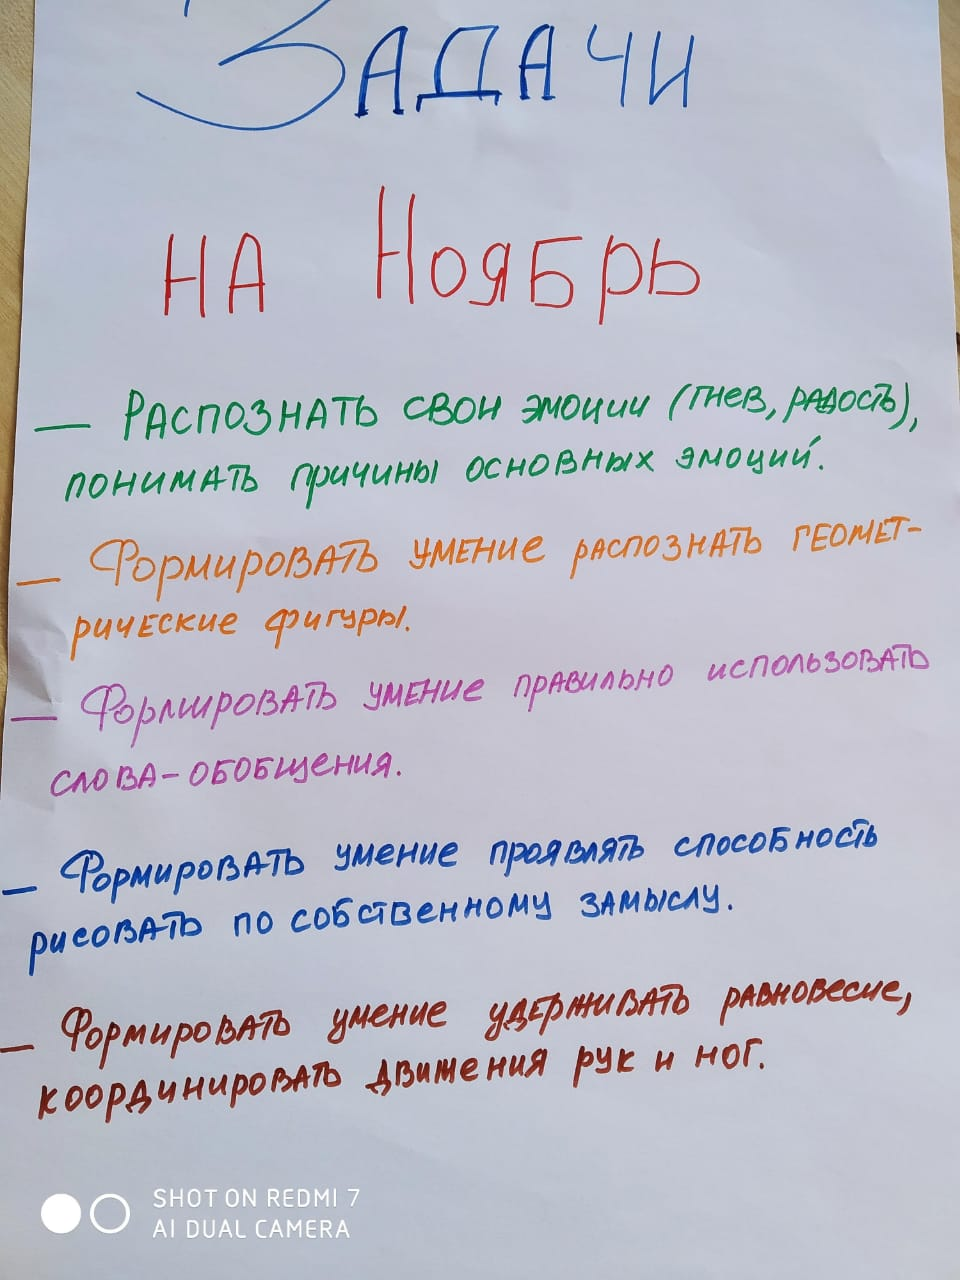 ЗАДАЧИ
НА НОЯБРЬ
— РАСПОЗНАТЬ СВОИ ЭМОЦИИ (ГНЕВ, РАДОСТЬ),
ПОНИМАТЬ ПРИЧИНЫ ОСНОВНЫХ ЭМОЦИЙ.
— ФОРМИРОВАТЬ УМЕНИЕ РАСПОЗНАТЬ ГЕОМЕТ-
РИЧЕСКИЕ ФИГУРЫ.
— ФОРМИРОВАТЬ УМЕНИЕ ПРАВИЛЬНО ИСПОЛЬЗОВАТЬ
СЛОВА-ОБОБЩЕНИЯ.
— ФОРМИРОВАТЬ УМЕНИЕ ПРОЯВЛЯТЬ СПОСОБНОСТЬ
РИСОВАТЬ ПО СОБСТВЕННОМУ ЗАМЫСЛУ.
— ФОРМИРОВАТЬ УМЕНИЕ УДЕРЖИВАТЬ РАВНОВЕСИЕ,
КООРДИНИРОВАТЬ ДВИЖЕНИЯ РУК И НОГ.
SHOT ON REDMI 7
AI DUAL CAMERA